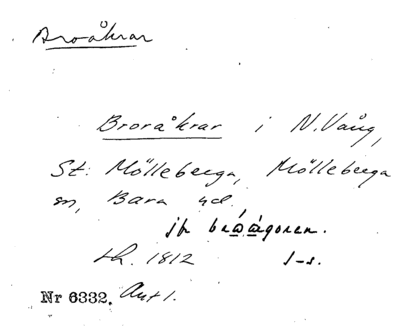 Broåkrar
Broråkrar i N. Vång,
St. Mölleberga, Mölleberga
sn, Bara hd.
jfr
sk. 1812 1-s.
Nr 6332. Avt 1.